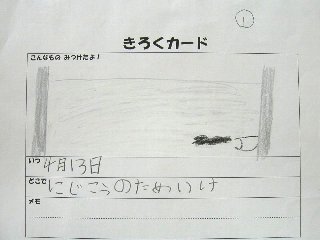 ①
きろくカード
こんなもの みつけたよ！
いつ 4月13日
どこで にじこうのためいけ
メモ